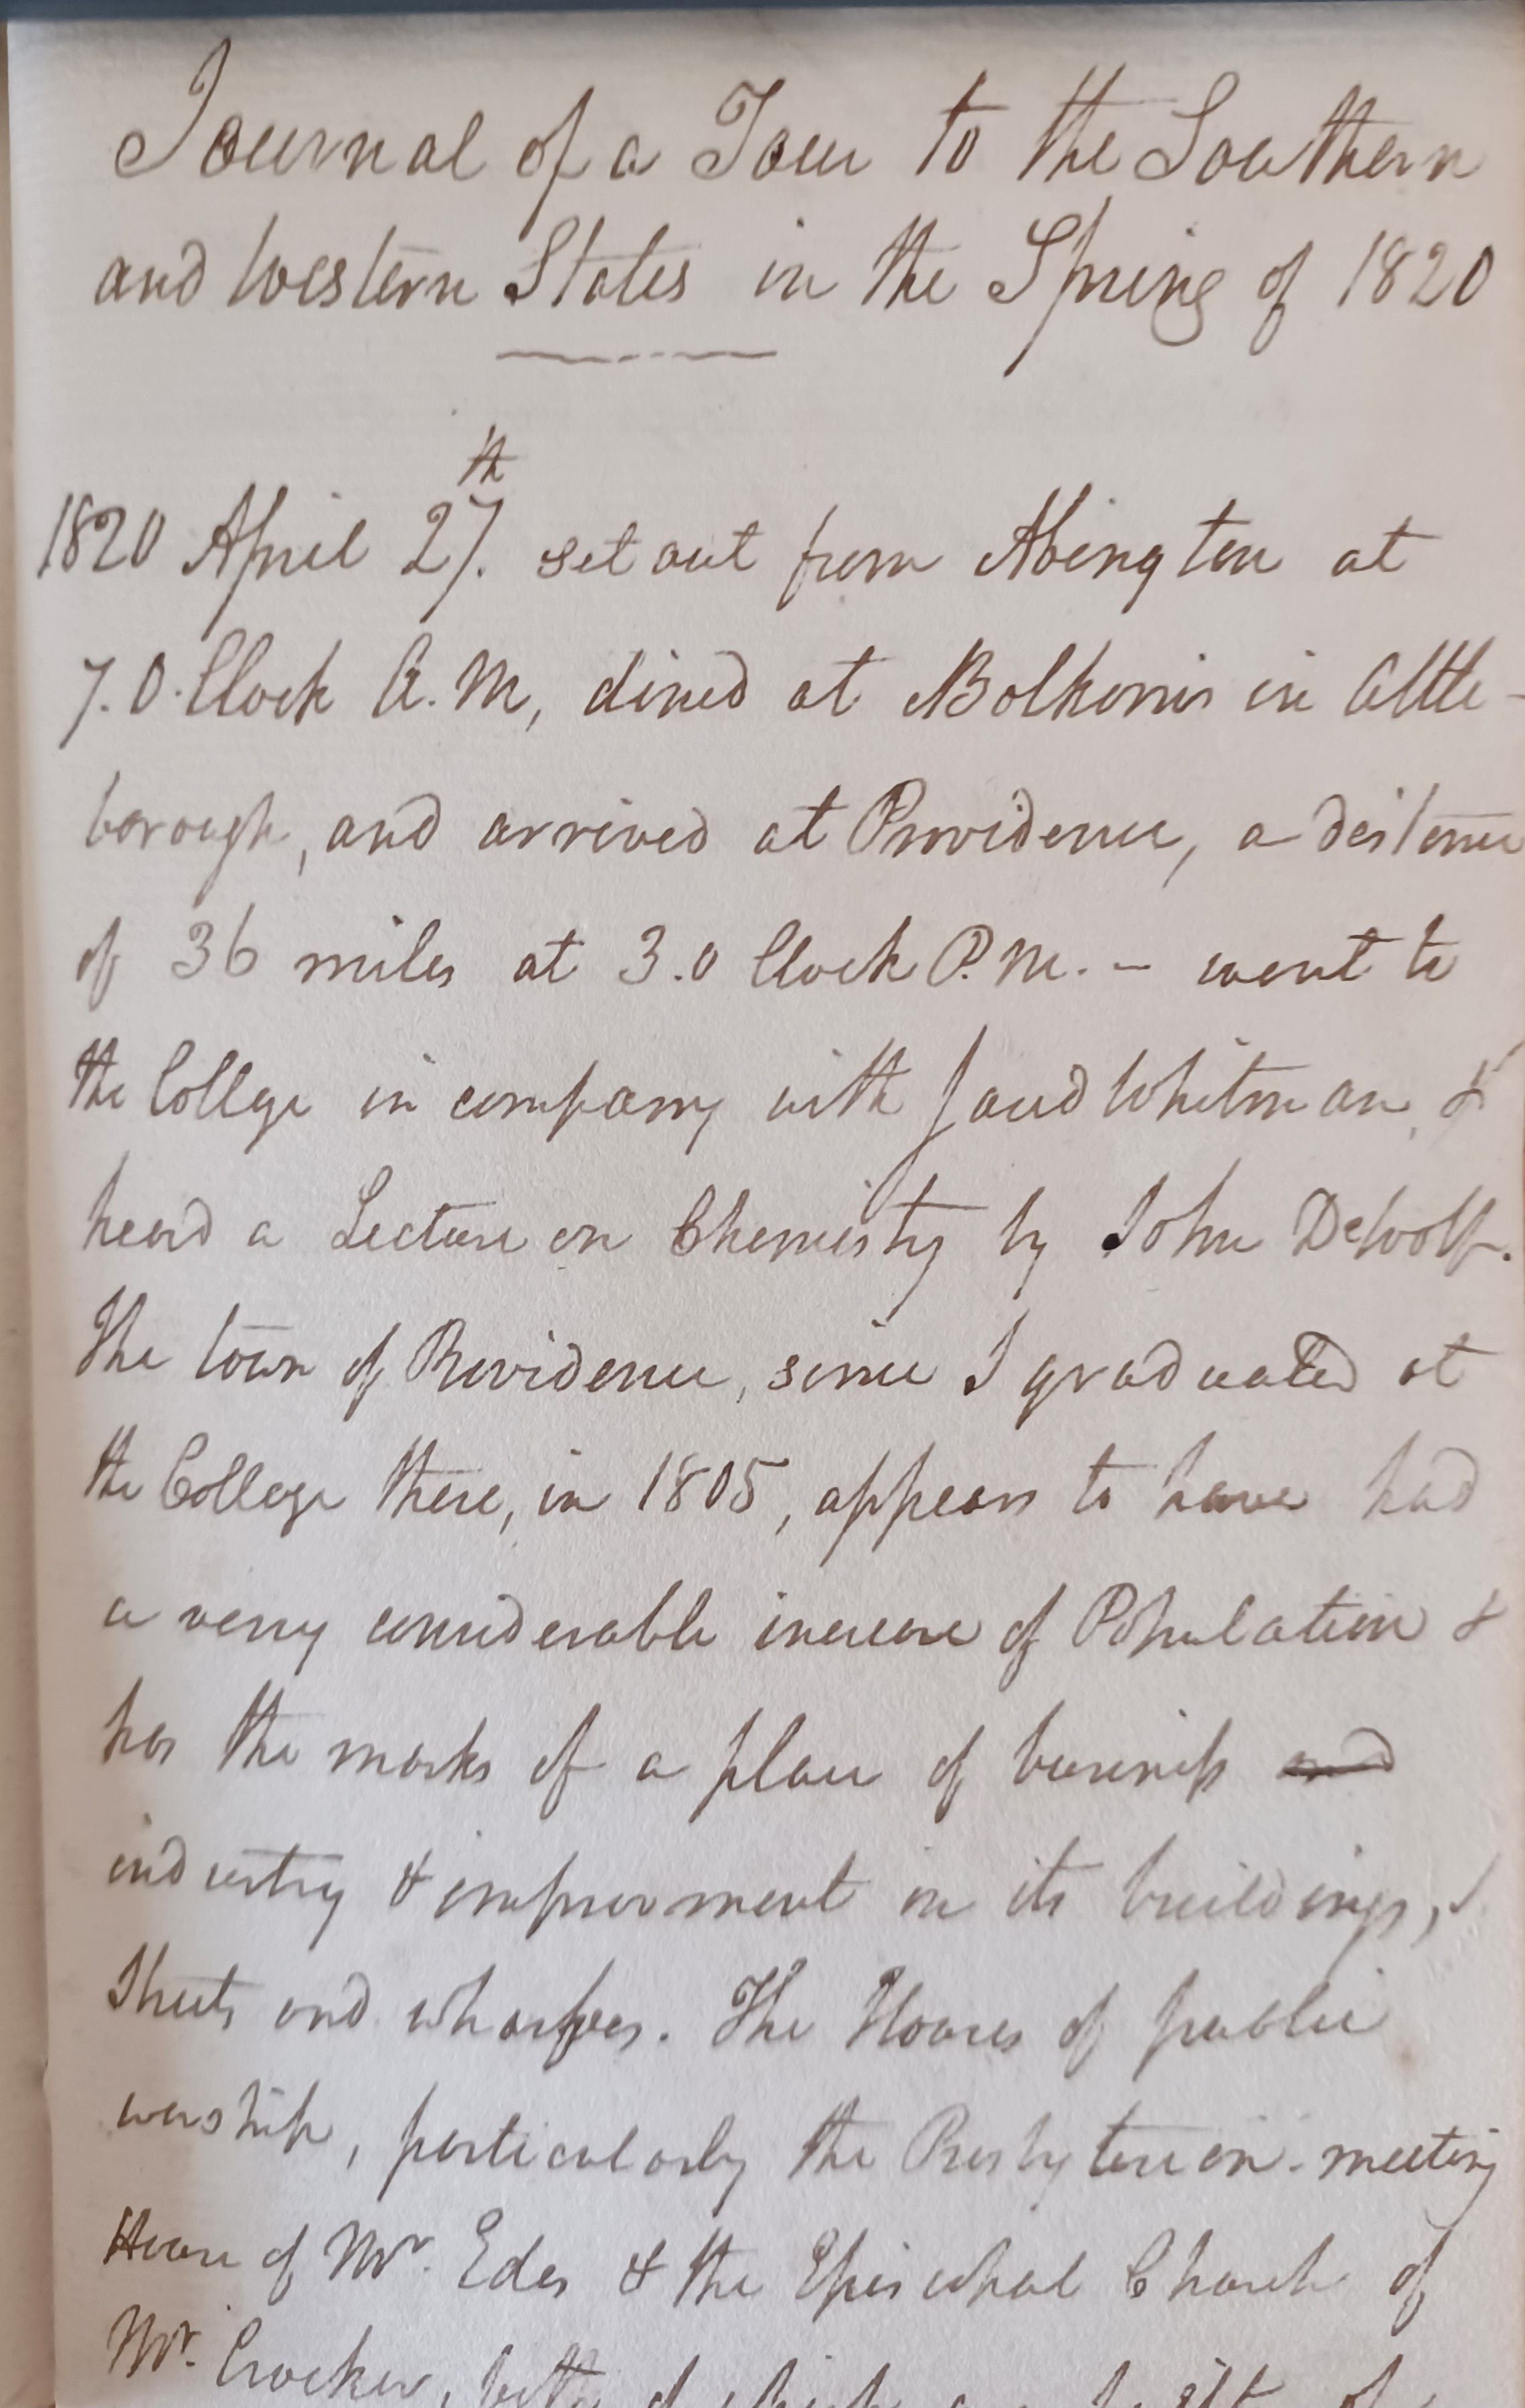 Journal of a Tour to the Southern
and Western States in the Spring of 1820
1820 April 27th. set out from Abington at
7.O.Clock A.M, dined at in Attle-
borough, and arrived at Providence, a distance
of 36 miles at 3.O Clock P.M. - went to
the College in company with Jared Whitman, &
heard a Lecture on Chemistry by John DeWolf.
The town of Providence, since I graduated at
the College there, in 1805, appears to have had
a very considerable increase of Population &
has the marks of a place of business and
industry & improvment in its buildings,
Streets and wharfves. The Houses of public
worship, particularly the Presbyterian-meeting
House of Mr. Edes & the Episcopal Church of
Mr. Crocker, both of which are built of